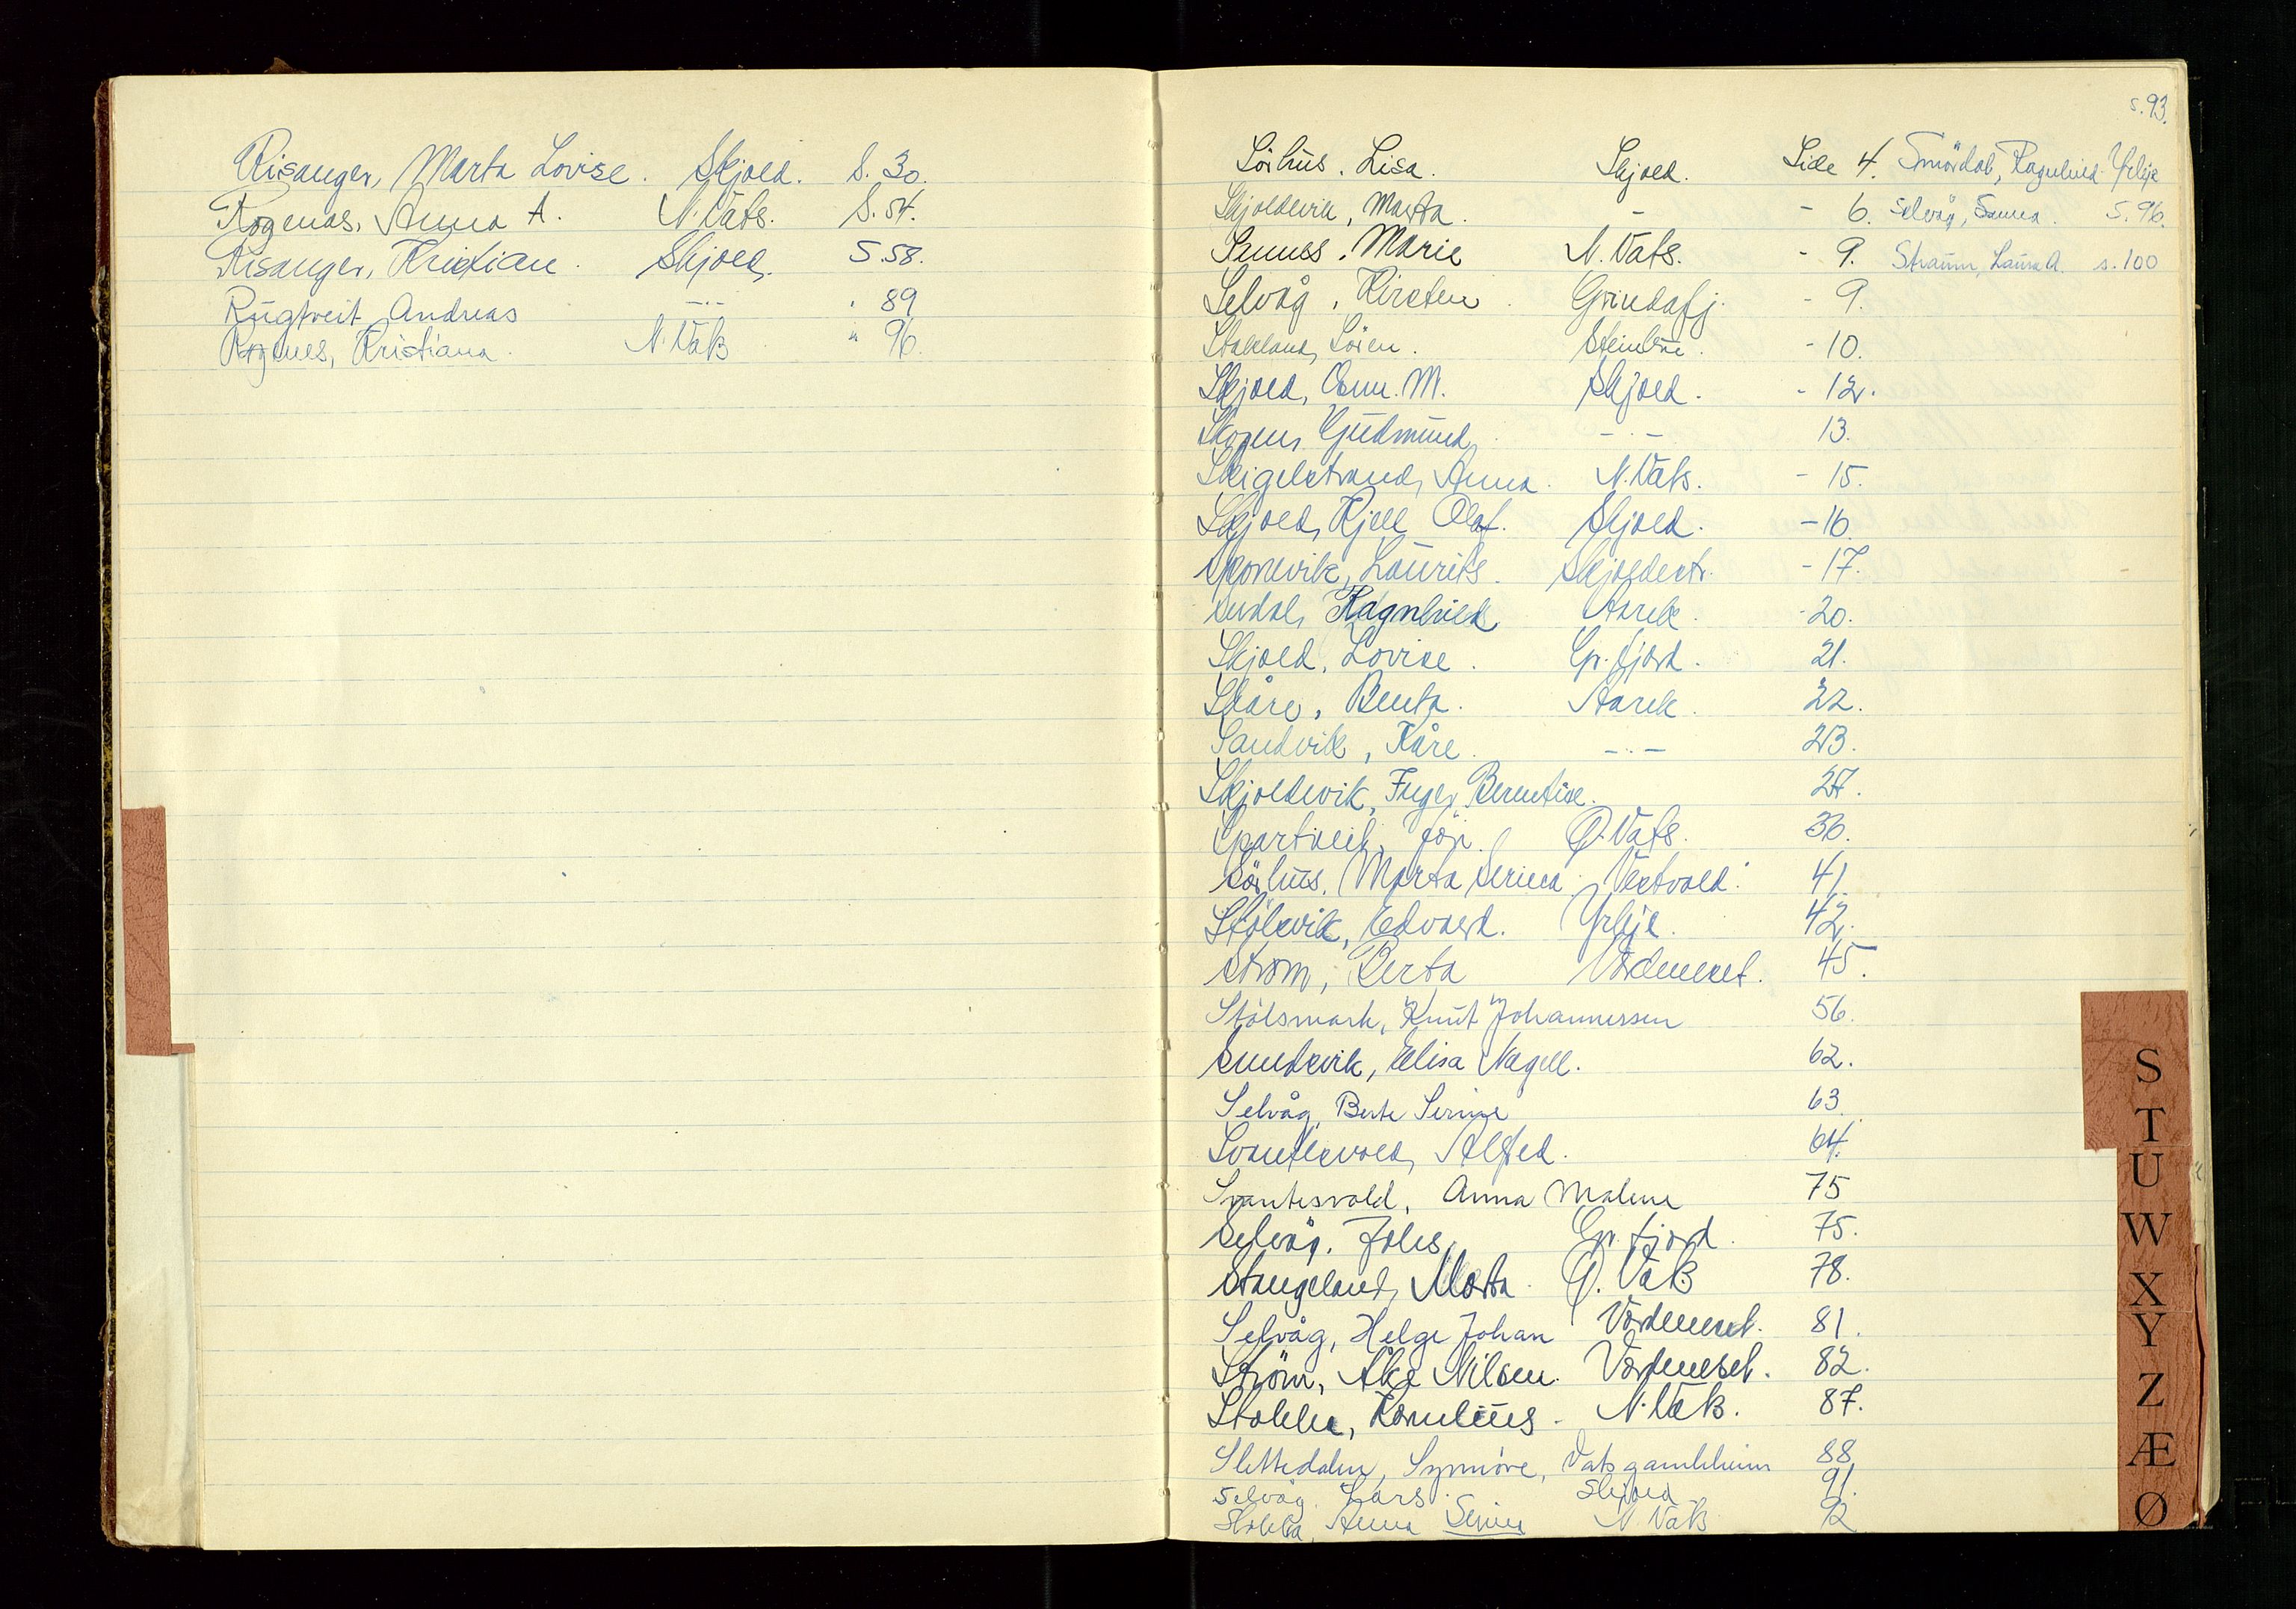 Risanger, Marta Lovise. Skjold. S. 30.
Rogenas, Anna A. N. Vats. S. 54.
Risanger, Kristian. Skjold. S. 58.
Rugtveit Andreas —··— " 89
Rognes, Kristiana. N. Vats " 96.
s. 93.
Sörhus, Lisa. Skjold. Side 4. Smördal, Ragnhild. Yrkje
Skjoldevik, Marta. - - 6. Selvåg, Sanna. S. 96.
Sunnes, Marie N. Vats. - 9. Straum, Laura A. s. 100
Selvåg, Kirsten. Grindafj. - 9.
Stakland, Sören. Steinbru. - 10.
Skjold, Osm. M. Skjold. - 12.
Skogen, Gudmund, —·— 13.
Skigelstrand, Anna. N. Vats. - 15.
Skjold, Kjell Olaf. Skjold. - 16.
Skonevik, Laurits. Skjoldestr. - 17.
Sudal, Ragnhild Aarek. - 20.
Skjold, Lovise. Gr. fjord. 21.
Skåre, Benta. Aarek. 22.
Sandvik, Kåre. —·— 23.
Skjoldevik, Inger Berentine. 27.
Spartveit, Jon. Ø. Vats. 36.
Sörhus, Marta Serina. Vestvold. 41.
Stölsvik, Edvard. Yrkje. 42.
Ström, Berta Vårdeneset. 45.
Stölsmark, Knut Johannessen 56.
Sundsvik, Elisa Nagell. 62.
Selvåg, Berte Serine 63.
Svantesvold, Alfred. 64.
Svantesvold, Anna Malene 75
Selvåg, Johs. Gr. fjord. 75.
Stangeland, Marta. Ø. Vats 78.
Selvåg, Helge Johan Vårdeneset. 81.
Ström, Åke Nilsen. Vårdeneset. 82.
Stakke, Kornelius. N. Vats. 87.
Slettedalen, Synnöve, Vats gamleheim 88.
Selvåg, Lars. Skjold 91.
Stakka, Anna Serine N. Vats 92
S
T
U
W
X
Y
Z
Æ
Ø